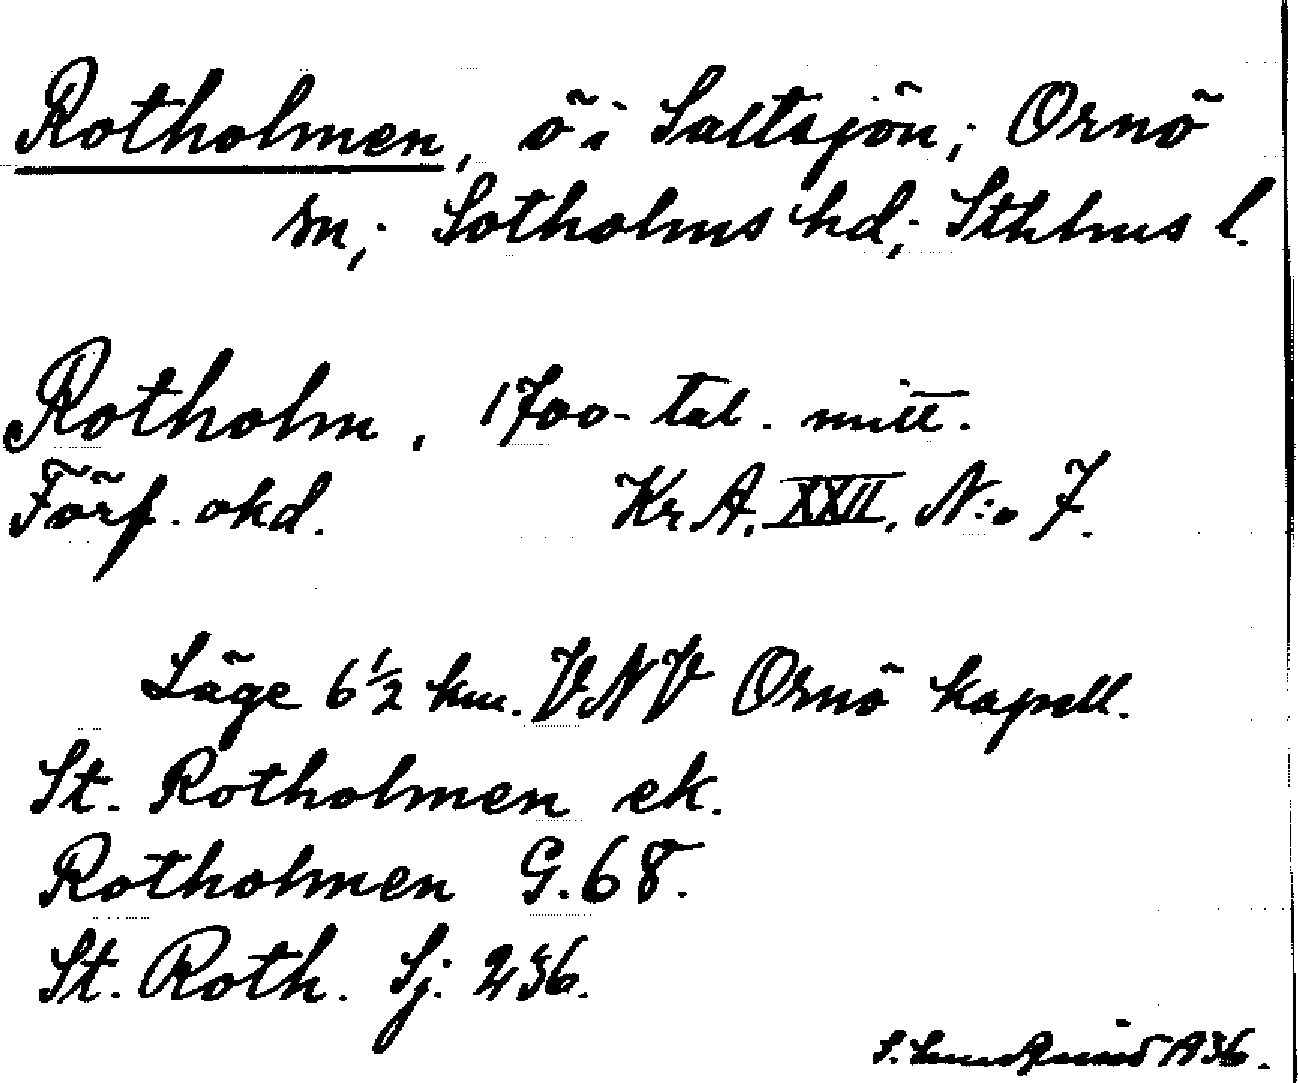 Rotholmen, ö i Saltsjön; Ornö
sn; Sotholms hd; Sthlms l.
Rotholm. 1700-tal. mitt.
Förf. okd. Kr. A. XXII, N:o 7.
Läge 6 1/2 km. VNV Ornö kapell.
St. Rotholmen ek.
Rotholmen G. 68.
St. Roth. Sj: 236.
S. 1936.